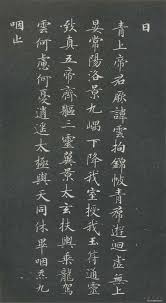 日
青上帝君厥諱雲拘錦帔青帬遊迴虛無上
晏常陽洛景九嵎下降我室授我玉符通靈
致真五帝齊軀三靈翼景太玄扶輿乘龍駕
雲何慮何憂遨遊太極與天同休畢咽炁九
咽止